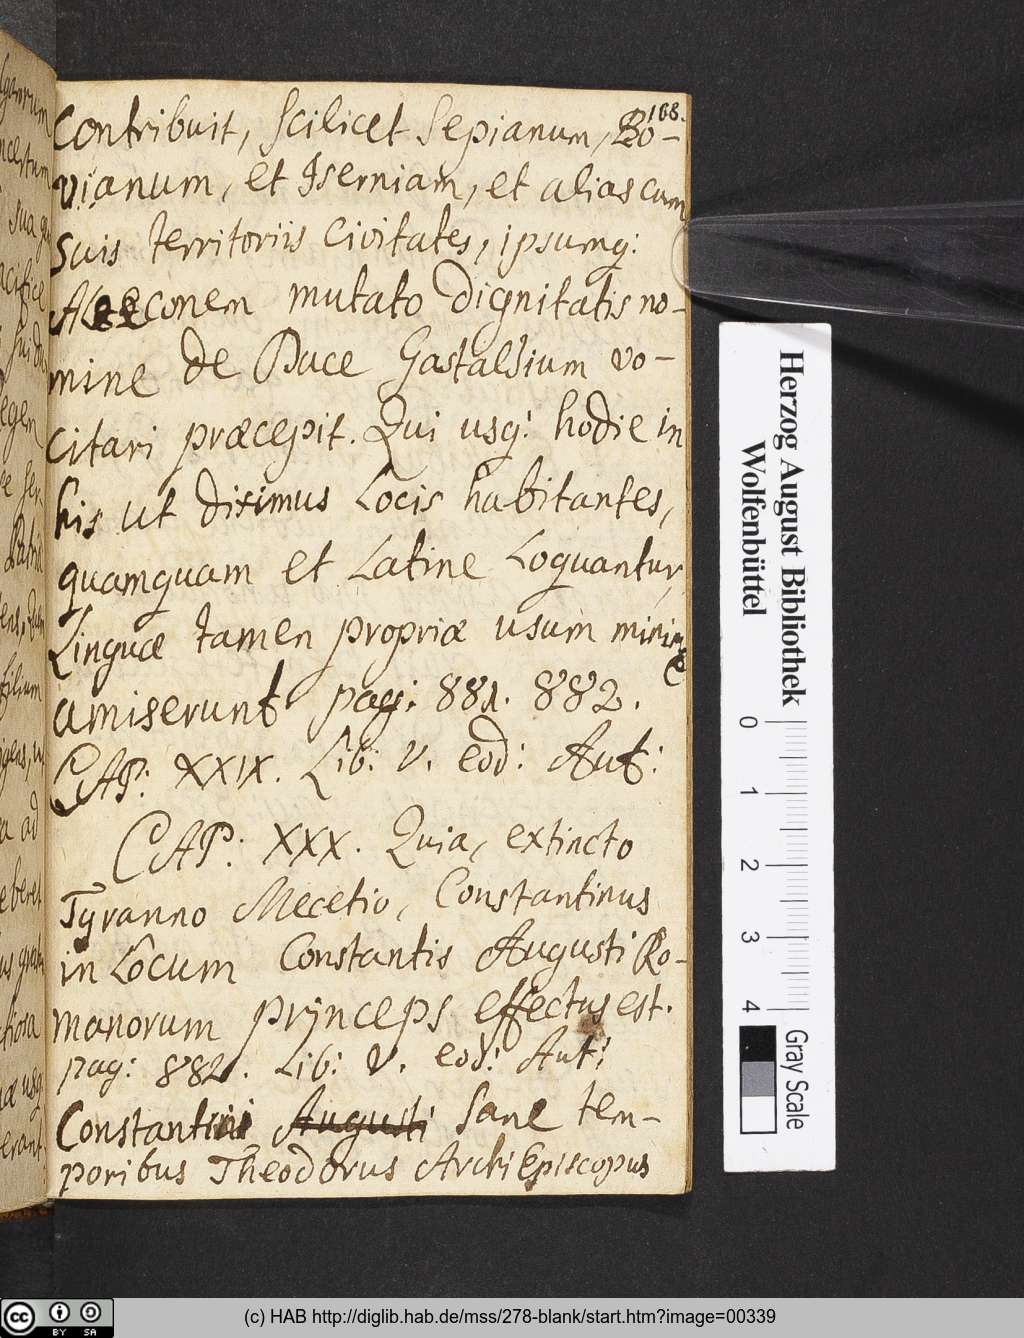 168.
Contribuit, scilicet Sepianum, Bo-
vianum, et Iserniam, et alias cum
suis territoriis Civitates, ipsumq:
conem mutato dignitatis no-
mine de Duce Gastaldium vo-
citari præcepit. Qui usq: hodie in
his ut diximus Locis habitantes,
quamquam et Latine Loquantur,
Linguæ tamen propriæ usum minime
amiserunt pag: 881. 882.
CAP: XXIX. Lib: V. eod: Aut:
CAP: XXX. Quia, extincto
Tyranno Mecetio, Constantinus
in Locum Constantis Augusti Ro-
manorum princeps effectus est.
pag: 882. Lib: V. eod: Aut:
Constantini Augusti sane tem-
poribus Theodorus ArchiEpiscopus
Herzog August Bibliothek
Wolfenbüttel
0 1 2 3 4
Gray Scale
cc BY SA
(c) HAB http://diglib.hab.de/mss/278-blank/start.htm?image=00339